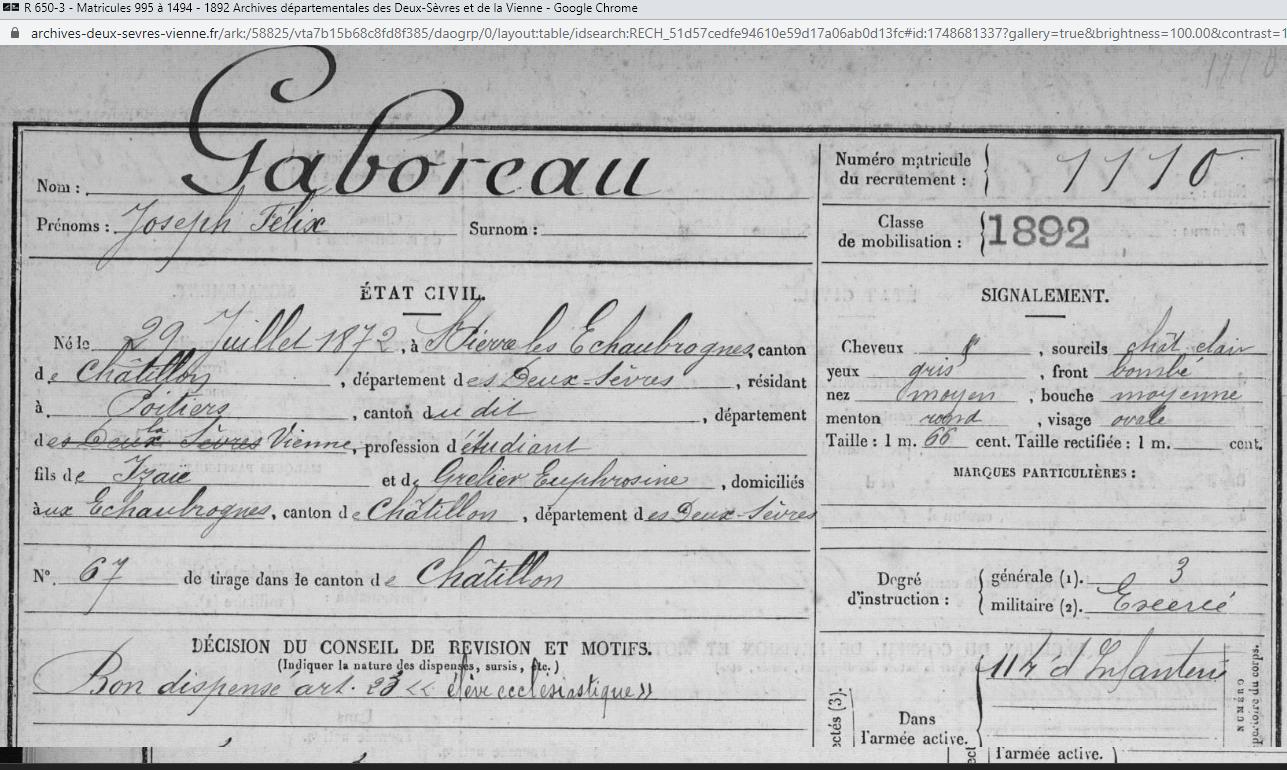 R 650-3 - Matricules 995 à 1494 - 1892 Archives départementales des Deux-Sèvres et de la Vienne - Google Chrome
archives-deux-sevres-vienne.fr/ark:/58825/vta7b15b68c8fd8f385/daogrp/0/layout:table/idsearch:RECH_51d57cedfe94610e59d17a06ab0d13fc#id:1748681337?gallery=true&brightness=100.00&contrast=1
Nom : Gaboreau
Prénoms : Joseph Félix Surnom :
Numéro matricule
du recrutement : 1110
Classe
de mobilisation : 1892
ÉTAT CIVIL.
Né le 29 Juillet 1872, à St Pierre les Echaubrognes, canton
de Châtillon, département des Deux-Sèvres, résidant
à Poitiers, canton du dit, département
des Deux Sèvres la Vienne, profession d'étudiant
fils de Izaïe et de Grelier Euphrosine, domiciliés
aux Echaubrognes, canton de Châtillon, département des Deux-Sèvres
N°. 67 de tirage dans le canton de Châtillon
DÉCISION DU CONSEIL DE REVISION ET MOTIFS.
(Indiquer la nature des dispenses, sursis, etc.)
Bon dispensé art. 23 << élève ecclésiastique >>
SIGNALEMENT.
Cheveux, sourcils chât clair
yeux gris, front bombé
nez moyen, bouche moyenne
menton rond, visage ovale
Taille : 1 m. 66 cent. Taille rectifiée : 1 m. cent.
MARQUES PARTICULIÈRES :
Degré
d'instruction :
générale (1). 3
militaire (2). Exercé
Dans
l'armée active.
114 d'Infanterie
l'armée active.